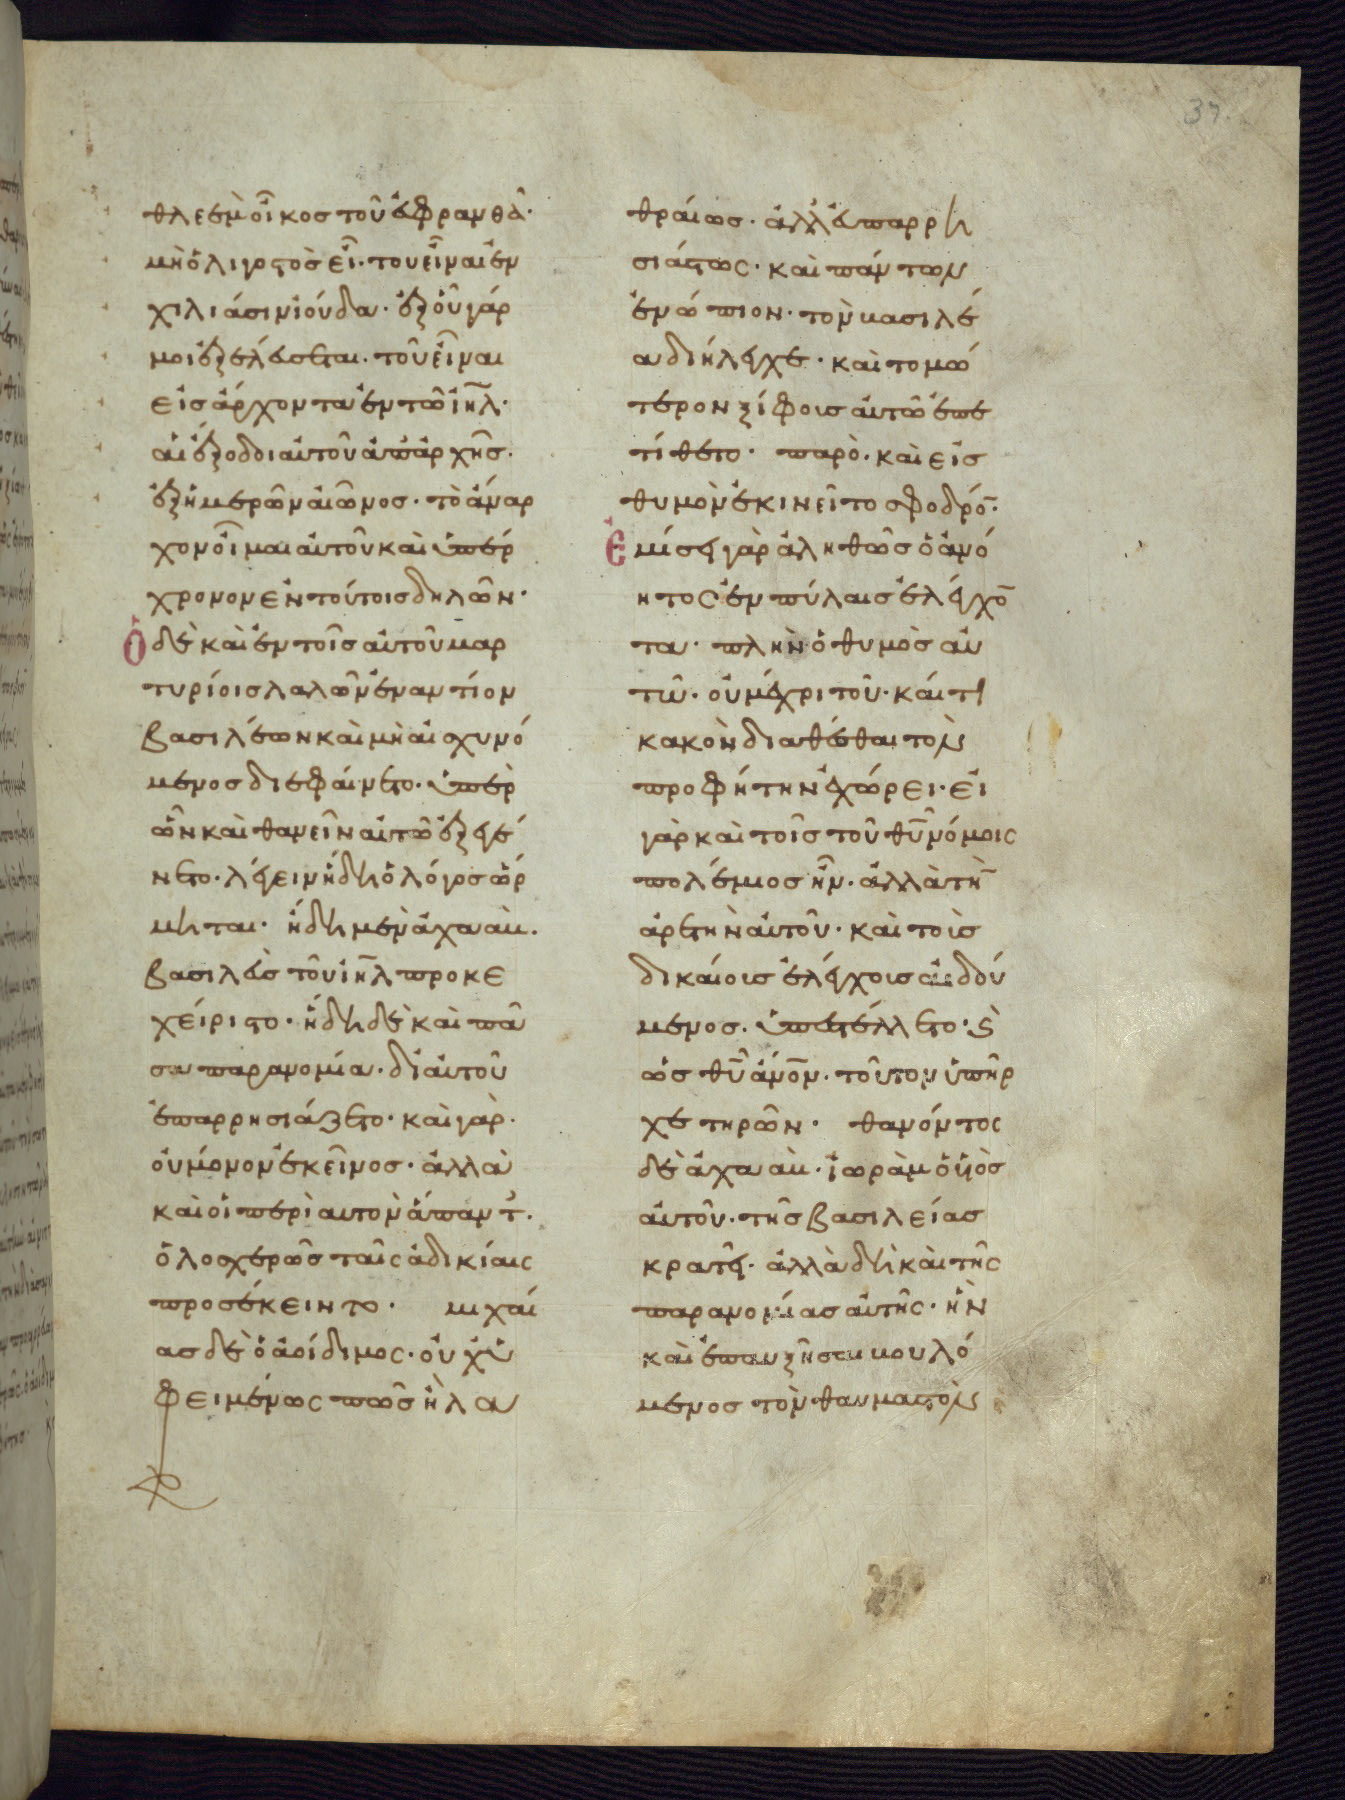 37
θλεὲμ οἶκος τοῦ ἐφραθᾶ·
μὴ ὀλιγοστὸς εἶ· τοῦ εἶναι ἐν
χιλιάσιν ἰούδα· ἐξ οὗ γάρ
μοι ἐξελεύσεται· τοῦ εἶναι
εἰς ἄρχοντα ἐν τῶ ἰη̅λ·
αἱ ἔξοδοι αὐτοῦ ἀπ' ἀρχῆς·
ἐξ ἡμερῶν αἰῶνος· τὸ ἄναρ
χον οἶμαι αὐτοῦ καὶ ὑπέρ
χρονον ἐν τούτοις δηλῶν·
Ὁ δὲ καὶ ἐν τοῖς αὐτοῦ μαρ
τυρίοις λαλῶν ἐναντίον
βασιλέων καὶ μὴ αἰσχυνό
μενος διεφαίνετο· ὑπὲρ
ὧν καὶ θανεῖν αὐτῶ ἐξεγέ
νετο· λέγειν ἤδη ὁ λόγος ὥρ
μηται· ἤδη μὲν ἀχαὰβ·
βασιλεὺς τοῦ ἰη̅λ προκε
χείριστο· ἤδη δὲ καὶ πᾶ
σα παρανομία· δι' αὐτοῦ
ἐπαρρησιάζετο· καὶ γὰρ·
οὐ μόνον ἐκεῖνος· ἀλλὰ
καὶ οἱ περὶ αὐτὸν ἅπαντ·
ὁλοσχερῶς ταῖς ἀδικίαις
προσέκειντο· μιχαί
ας δὲ ὁ ἀοίδιμος· οὐχ ὑ
φειμένως πως ἢ λα
θραίως· ἀλλ' ἐπαρρη
σιάστως· καὶ πάντων
ἐνώπιον· τὸν βασιλέ
α διήλεγχε· καὶ τομώ
τερον ξίφοις αὐτῶ ἐπε
τίθετο· παρὸ· καὶ εἰς
θυμὸν ἐκινεῖτο σφοδρό̅·
Ἐμίσει γὰρ ἀληθῶς ὁ ἀνό
ητος ἐν πύλαις ἐλέγχο̅
τα· πλὴν ὁ θυμὸς αὐ
τῶ· οὐ μέχρι τοῦ· καί τι
κακὸν διαθέσθαι τὸν
προφήτην ἐχώρει· εἰ
γὰρ καὶ τοῖς τοῦ θ̅υ̅ νόμοις
πολέμιος ἦν· ἀλλὰ τὴ̅
ἀρετὴν αὐτοῦ· καὶ τοῖς
δικαίοις ἐλέγχοις αἰδού
μενος· ὑπεστέλλετο· ϗ
ὡς θ̅υ̅ ἄνο̅ν· τοῦτον ὑπῆρ
χε τηρῶν· θανόντος
δὲ ἀχαὰβ· ἰωρὰμ ὁ υἱὸς
αὐτοῦ· τῆς βασιλείας
κρατεῖ· ἀλλὰ δὴ καὶ τῆς
παρανομίας αὐτῆς· ἣν
καὶ ἐπαυξῆσαι βουλό
μενος τὸν θαυμαστὸν